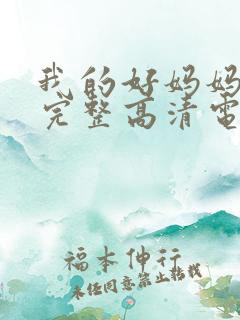 我的好妈妈
完整高清电
福本伸行
未经同意禁止转载